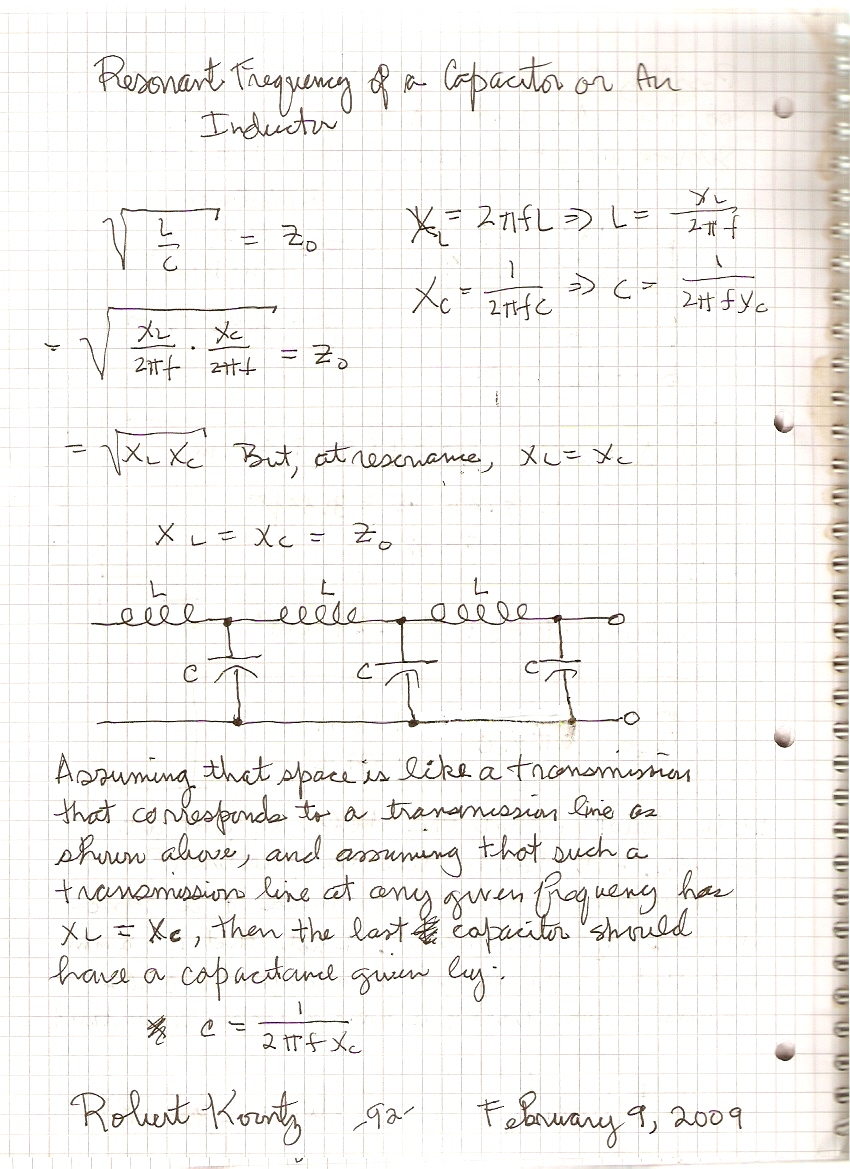 Resonant Frequency of a Capacitor or An
Inductor
√(L/C) = Z₀
X_L = 2πfL ⇒ L = X_L/(2πf)
X_C = 1/(2πfC) ⇒ C = 1/(2πf X_C)
= √(X_L/(2πf) · X_C/(2πf)) = Z₀
= √(X_L X_C) But, at resonance, X_L = X_C
X_L = X_C = Z₀
L L L
C C C
Assuming that space is like a transmission
that corresponds to a transmission line as
shown above, and assuming that such a
transmission line at any given frequency has
X_L = X_C, then the last capacitor should
have a capacitance given by:
C = 1/(2πf X_C)
Robert Koontz -92- February 9, 2009